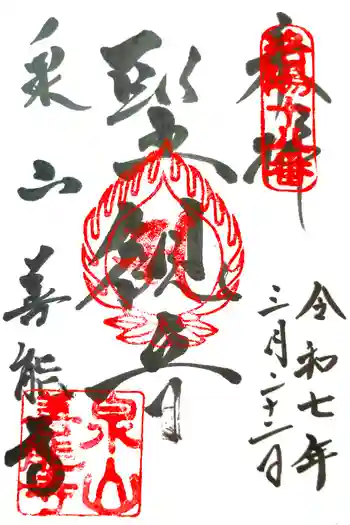 奉拝
洛陽十八番
令和七年
三月二十二日
聖観音
泉山善能寺
泉山善能寺